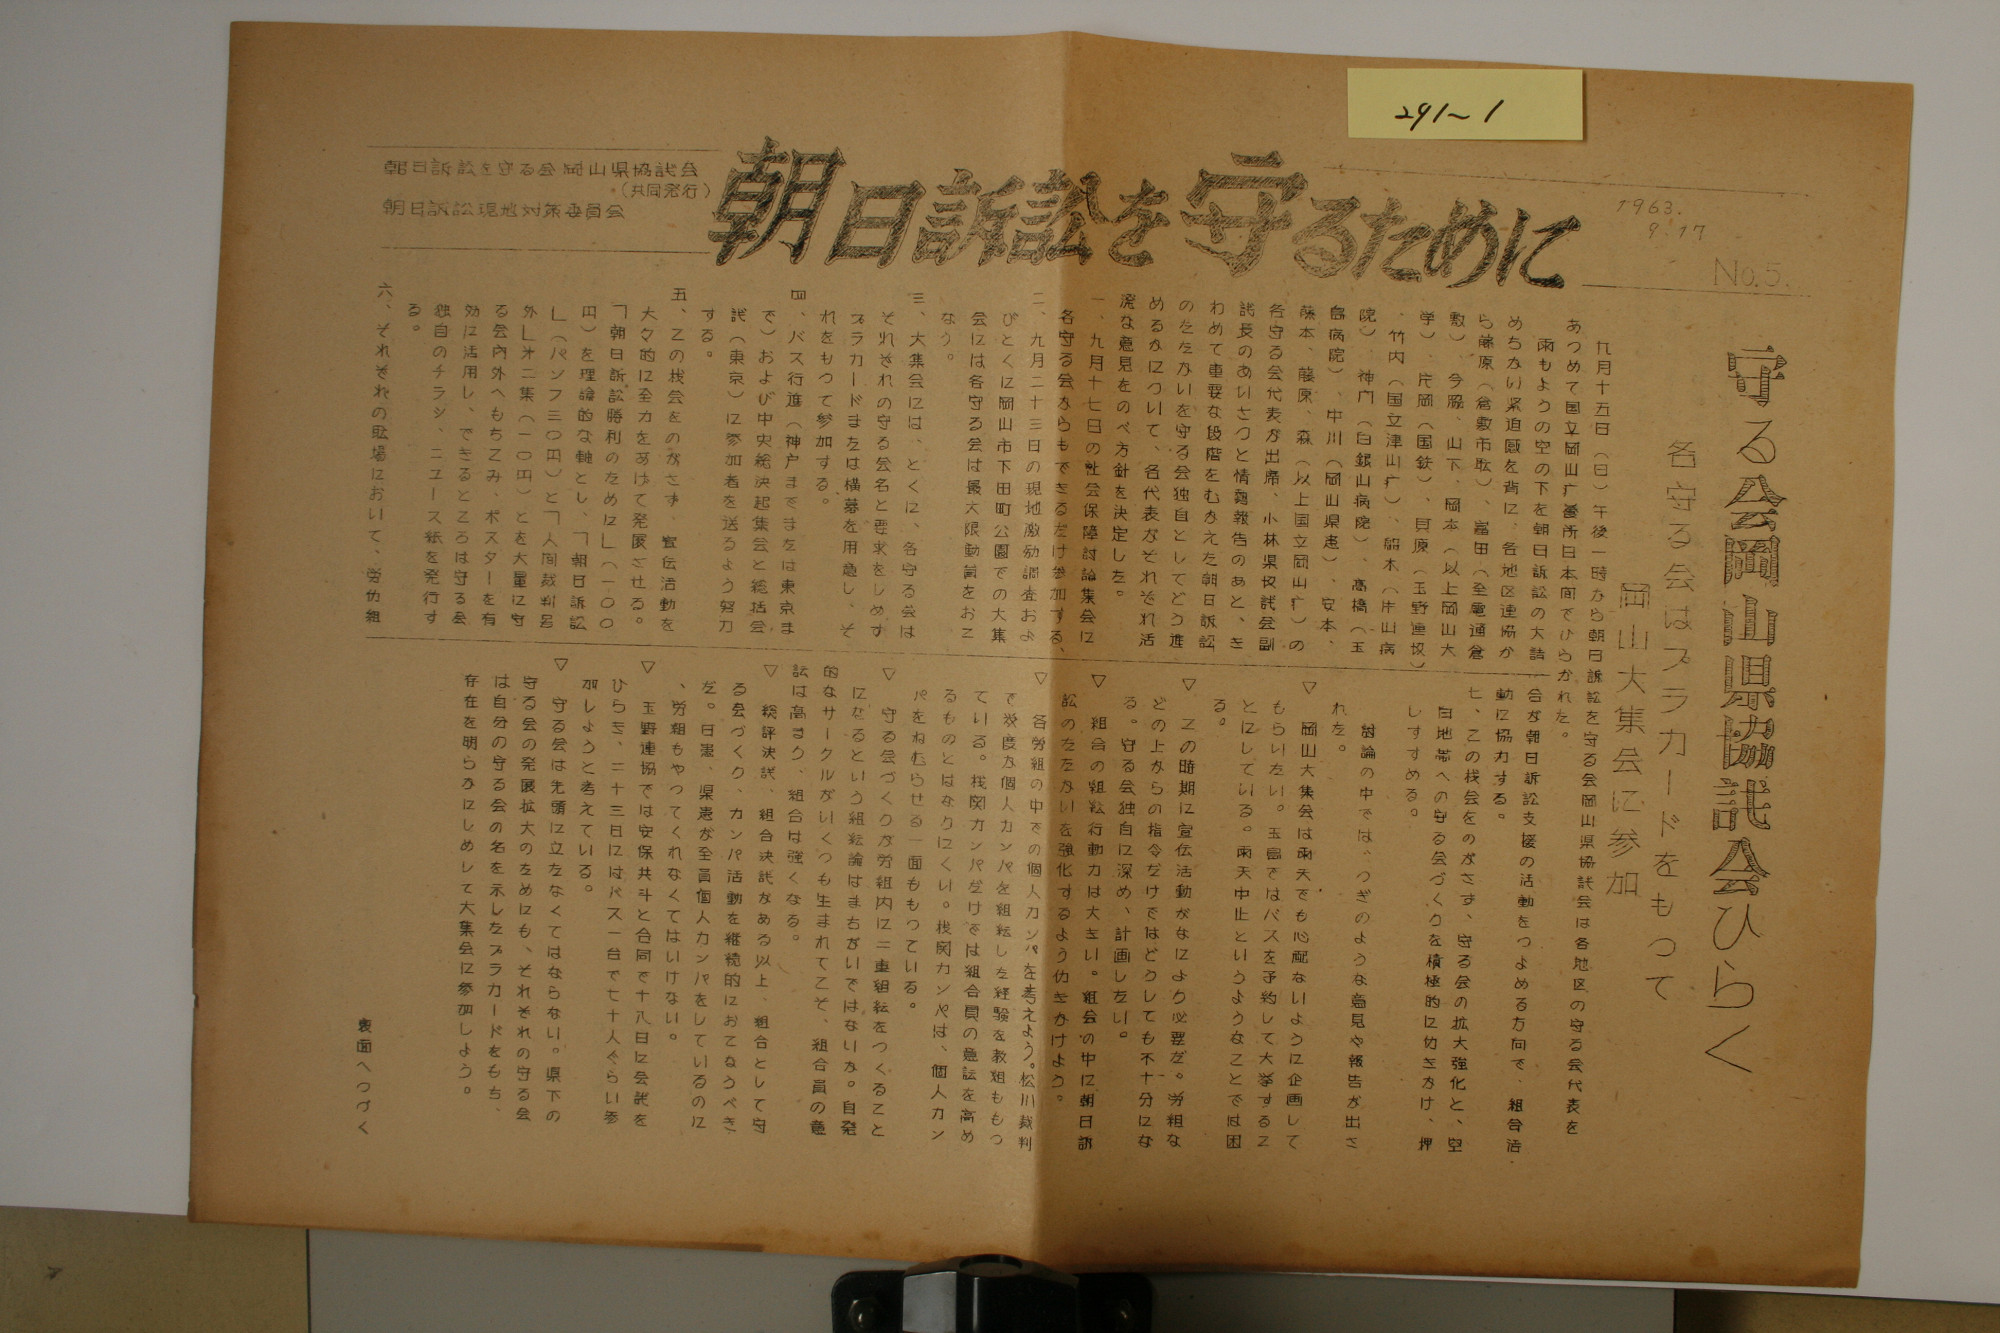 291~1
朝日訴訟を守るために
1963.
9.17
No.5.
朝日訴訟を守る会岡山県協議会
(共同発行)
朝日訴訟現地対策委員会
守る会岡山県協議会ひらく
各守る会はプラカードをもって
岡山大集会に参加
九月十五日(日)午後一時から朝日訴訟を守る会岡山県協議会は各地区の守る会代表を
あつめて国立岡山疒養所日本間でひらかれた。
雨もようの空の下を朝日訴訟の大詰
めちかい緊迫感を背に、各地区連協か
ら藤原(倉敷市職)、富田(全電通倉
敷)、今脇、山下、岡本(以上岡山大
学)、片岡(国鉄)、貝原(玉野連協)
、竹内(国立津山疒)、船木(津山病
院)、神門(白銀山病院)、高橋(玉
島病院)、中川(岡山県患)、安本、
藤本、藤原、森(以上国立岡山疒)の
各守る会代表が出席、小林県協議会副
議長のあいさつと情勢報告のあと、き
わめて重要な段階をむかえた朝日訴訟
のたたかいを守る会独自としてどう進
めるかについて、各代表がそれぞれ活
溌な意見をのべ方針を決定した。
一、九月十七日の社会保障討論集会に
各守る会からもできるだけ参加する、
二、九月二十三日の現地激励調査およ
びとくに岡山市下田町公園での大集
会には各守る会は最大限動員をおこ
なう。
三、大集会には、とくに、各守る会は
それぞれの守る会名と要求をしめす
プラカードまたは横幕を用意し、そ
れをもって参加する。
四、バス行進(神戸までまたは東京ま
で)および中央総決起集会と総括会
議(東京)に参加者を送るよう努力
する。
五、この机会をのがさず、宣伝活動を
大々的に全力をあげて発展させる。
「朝日訴訟勝利のために」(一〇〇
円)を理論的な軸とし、「朝日訴訟
」(パンフ三〇円)と「人間裁判号
外」オ二集(一〇円)とを大量に守
る会内外へもちこみ、ポスターを有
効に活用し、できるところは守る会
独自のチラシ、ニュース紙を発行す
る。
六、それぞれの職場において、労仂組
合が朝日訴訟支援の活動をつよめる方向で、組合活
動に協力する。
七、この机会をのがさず、守る会の拡大強化と、空
白地帯への守る会づくりを積極的に仂きかけ、押
しすすめる。
討論の中では、つぎのような意見や報告が出さ
れた。
▽ 岡山大集会は雨天でも心配ないように企画して
もらいたい。玉島ではバスを予約して大挙するこ
とにしている。雨天中止というようなことでは困
る。
▽ この時期に宣伝活動がなにより必要だ。労組な
どの上からの指令だけではどうしても不十分にな
る。守る会独自に深め、計画したい。
▽ 組合の組織行動力は大きい。組合の中に朝日訴
訟のたたかいを強化するよう仂きかけよう。
▽ 各労組の中での個人カンパを考えよう。松川裁判
で幾度か個人カンパを組織した経験を教組ももっ
ている。机関カンパだけでは組合員の意識を高め
るものとはなりにくい。机関カンパは、個人カン
パをねむらせる一面ももっている。
▽ 守る会づくりが労組内に二重組織をつくること
になるという組織論はまちがいではないか。自発
的なサークルがいくつも生まれてこそ、組合員の意
識は高まり、組合は強くなる。
▽ 総評決議、組合決議がある以上、組合として守
る会づくり、カンパ活動を継続的におこなうべき
だ。日患、県患が全員個人カンパをしているのに
、労組もやってくれなくてはいけない。
▽ 玉野連協では安保共斗と合同で十八日に会議を
ひらき、二十三日にはバス一台で七十人ぐらい参
加しようと考えている。
▽ 守る会は先頭に立たなくてはならない。県下の
守る会の発展拡大のためにも、それぞれの守る会
は自分の守る会の名を示したプラカードをもち、
存在を明らかにしめして大集会に参加しよう。
裏面へつづく